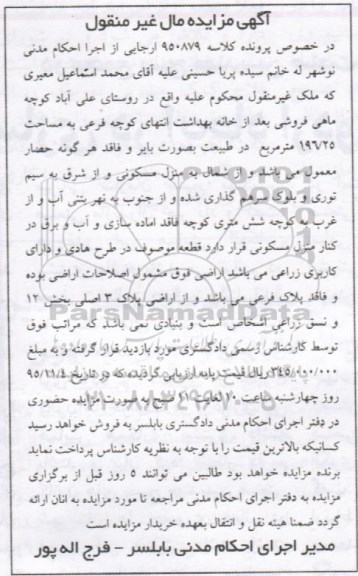 آگهی مزایده مال غیر منقول
در خصوص پرونده کلاسه ۹۵۰۸۷۹ ارجایی از اجرا احکام مدنی
نوشهر له خانم سیده پریا حسینی علیه آقای محمد اسماعیل معیری
که ملک غیرمنقول محکوم علیه واقع در روستای علی آباد کوچه
ماهی فروشی بعد از خانه بهداشت انتهای کوچه فرعی به مساحت
۱۹۶/۲۵ مترمربع در طبیعت بصورت بایر و فاقد هر گونه حصار
معمول می باشد و از شمال به منزل مسکونی و از شرق به سیم
توری و بلوک سرهم گذاری شده و از جنوب به نهر بتنی آب و از
غرب به کوچه شش متری کوچه فاقد اماده سازی و آب و برق در
کنار منزل مسکونی قرار دارد قطعه موصوف در طرح هادی و دارای
کاربری زراعی می باشد اراضی فوق مشمول اصلاحات اراضی بوده
و فاقد پلاک فرعی می باشد و از اراضی پلاک ۳ اصلی بخش ۱۲
و نسق زراعی اشخاص است و بنیادی نمی باشد که مراتب فوق
توسط کارشناس رسمی دادگستری مورد بازدید قرار گرفته و به مبلغ
۳۴۵/۰۰۰/۰۰۰ ریال قیمت پایه ارزیابی گردیده که در تاریخ ۹۵/۱۱/۴
روز چهارشنبه ساعت ۱۰ لغایت ۱۱ صبح به صورت مزایده حضوری
در دفتر اجرای احکام مدنی دادگستری بابلسر به فروش خواهد رسید
کسانیکه بالاترین قیمت را با توجه به نظریه کارشناس پرداخت نماید
برنده مزایده خواهد بود طالبین می توانند ۵ روز قبل از برگزاری
مزایده به دفتر اجرای احکام مدنی مراجعه تا مورد مزایده به انان ارائه
گردد ضمنا هیته نقل و انتقال بعهده خریدار مزایده است
مدیر اجرای احکام مدنی بابلسر – فرج اله پور
ParsNamadData